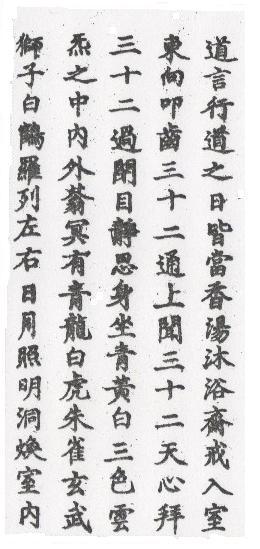 道言行道之日皆當香湯沐浴齋戒入室
東向叩齒三十二通上聞三十二天心拜
三十二過閉目靜思身坐青黃白三色雲
炁之中內外蓊冥有青龍白虎朱雀玄武
獅子白鶴羅列左右日月照明洞煥室內